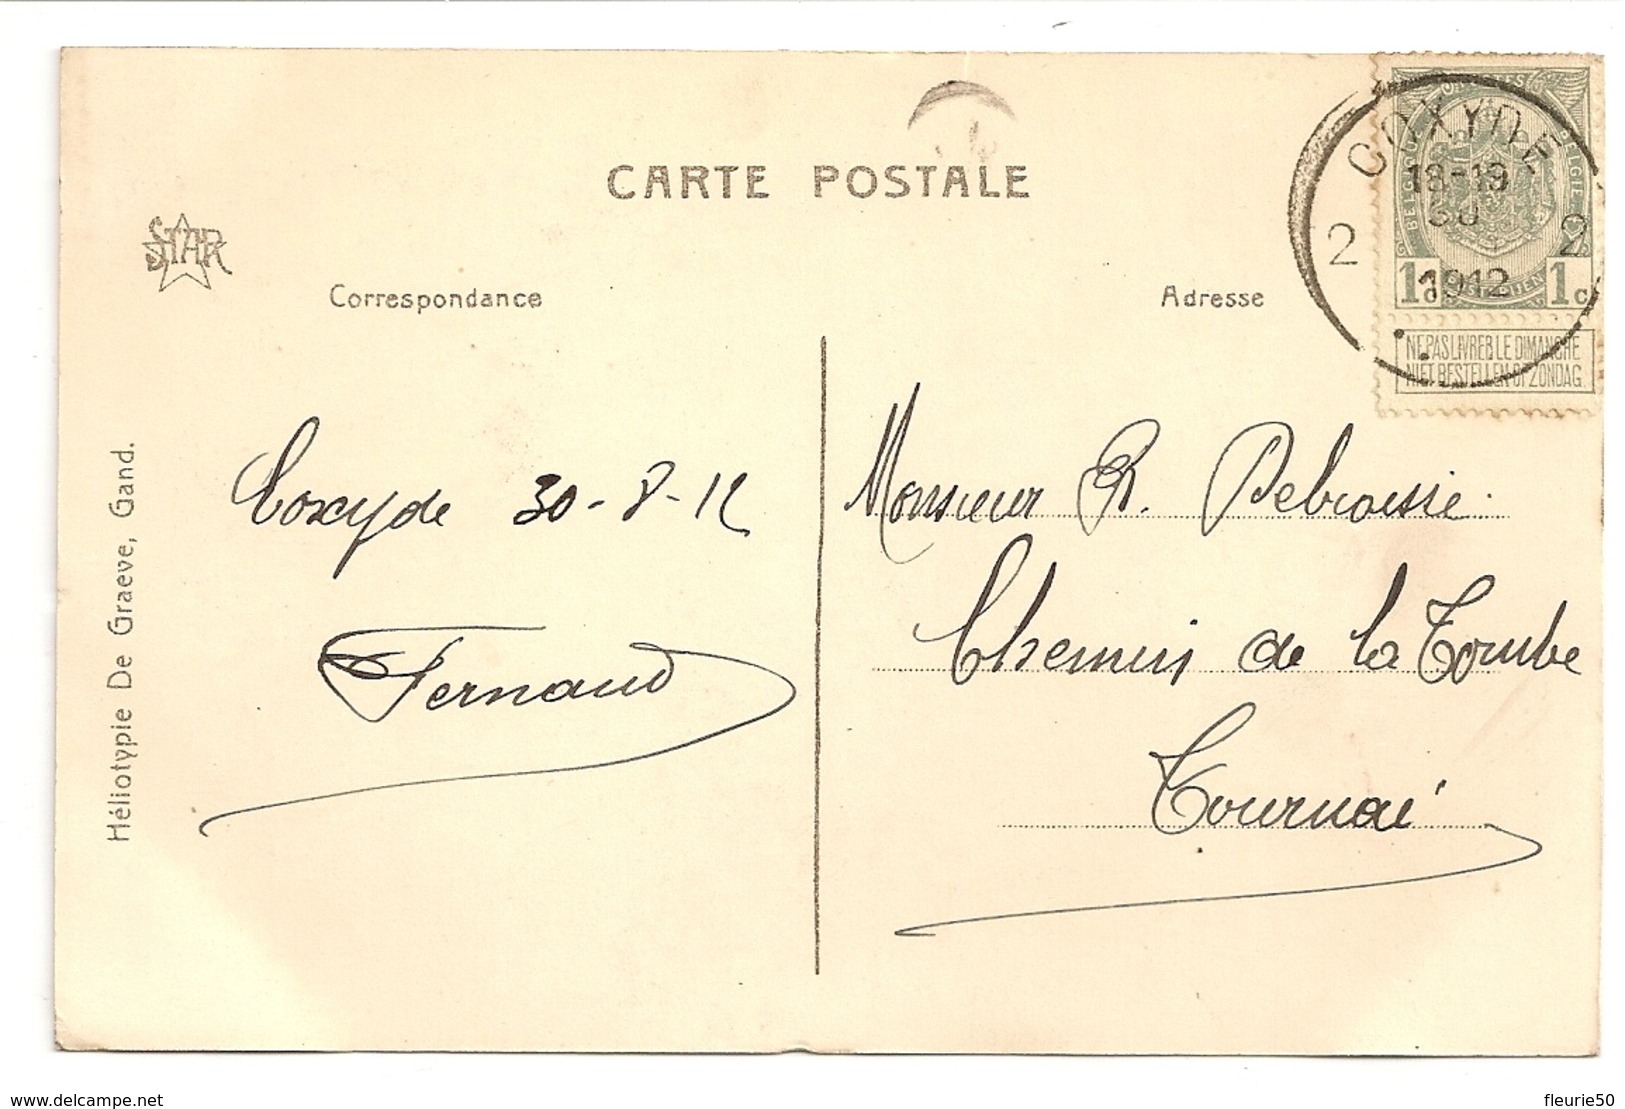 CARTE POSTALE
STAR
Correspondance
Adresse
COXYDE
18-19
30
1912
2
2
POSTES
BELGIQUE
BELGIË
POSTERIJEN
1c
1c
NE PAS LIVRER LE DIMANCHE
NIET BESTELLEN OP ZONDAG
Coxyde 30-8-12
Fernand
Monsieur R. Debroisse.
Chemin de la Tombe
Tournai
Héliotypie De Graeve, Gand.
fleurie50